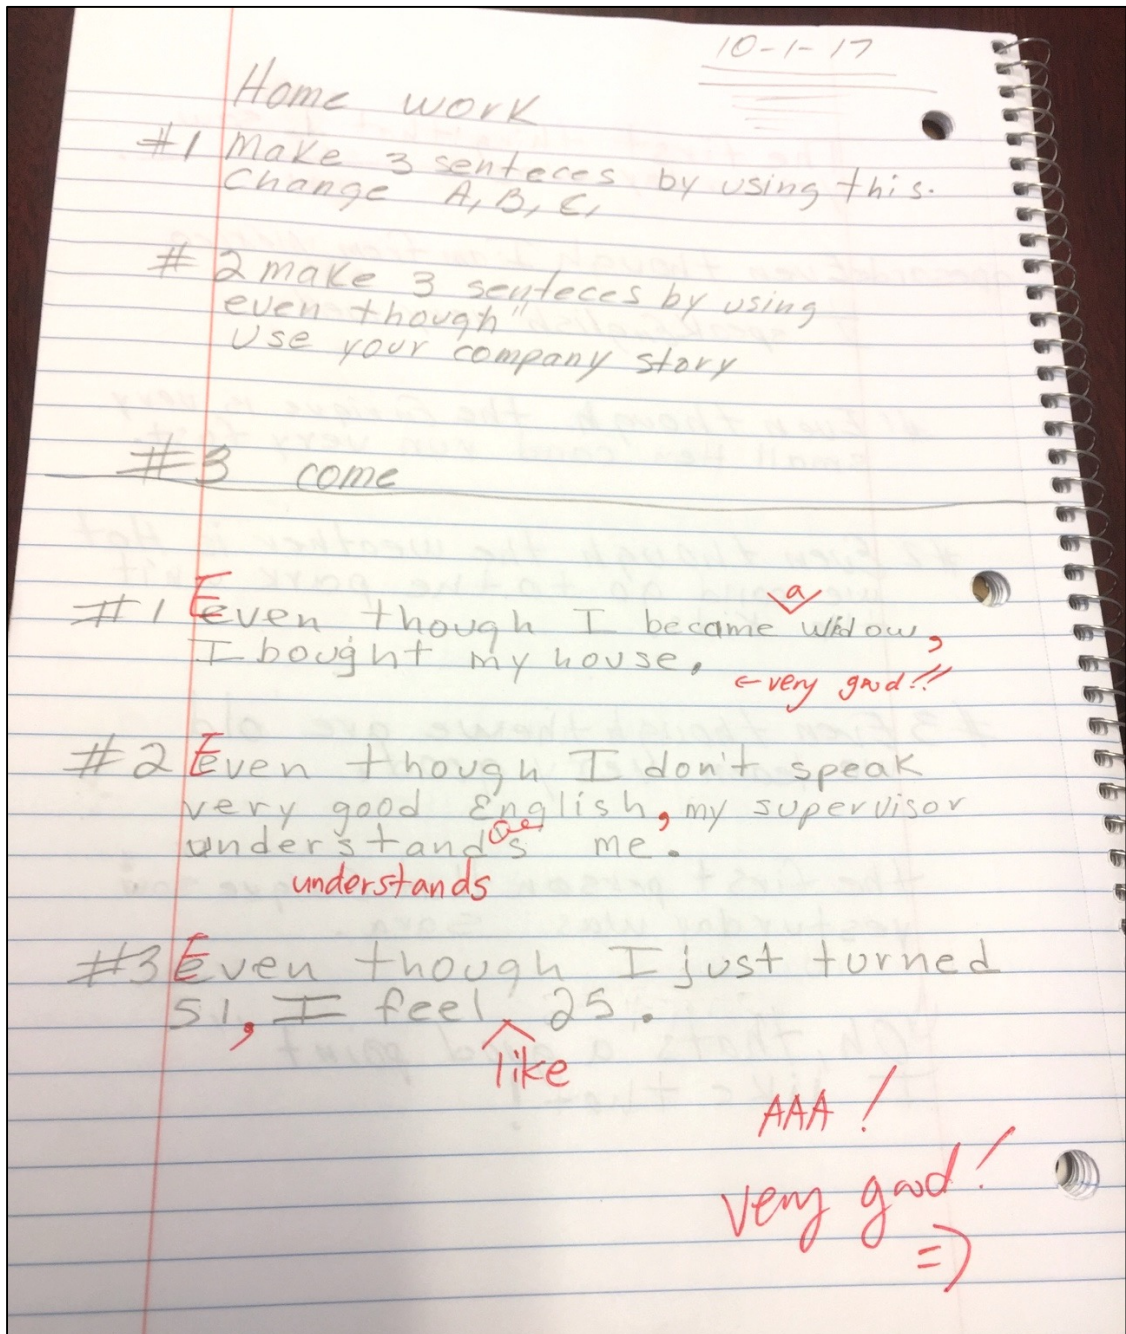 10-1-17
Home work
#1 Make 3 senteces by using this.
Change A, B, C,
#2 make 3 senteces by using
even though"
Use your company story
#3 come
#1 Even though I became a widow,
I bought my house.
← very good!!
#2 Even though I don't speak
very good English, my supervisor
understand's me.
understands
#3 Even though I just turned
51, I feel 25.
like
AAA!
very good!
=)